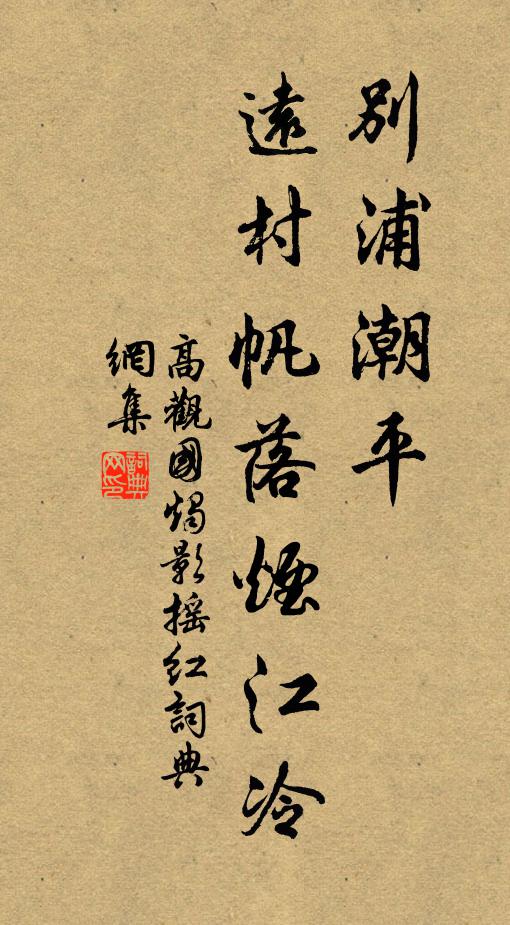 別浦潮平
遠村帆落煙江冷
高觀國燭影搖紅詞典
網集
詞典
网印